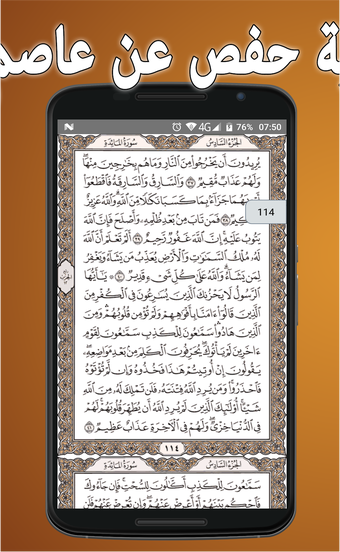 ة حفص عن عاصم
4G 76% 07:50
الجزء السادس سورة المائدة
يُرِيدُونَ أَن يَخْرُجُوا مِنَ النَّارِ وَمَا هُم بِخَارِجِينَ مِنْهَا
وَلَهُمْ عَذَابٌ مُّقِيمٌ ٣٧ وَالسَّارِقُ وَالسَّارِقَةُ فَاقْطَعُوا
أَيْدِيَهُمَا جَزَاءً بِمَا كَسَبَا نَكَالًا مِّنَ اللَّهِ وَاللَّهُ عَزِيزٌ
حَكِيمٌ ٣٨ فَمَن تَابَ مِن بَعْدِ ظُلْمِهِ وَأَصْلَحَ فَإِنَّ اللَّهَ
114
يَتُوبُ عَلَيْهِ إِنَّ اللَّهَ غَفُورٌ رَّحِيمٌ ٣٩ أَلَمْ تَعْلَمْ أَنَّ اللَّهَ
لَهُ مُلْكُ السَّمَاوَاتِ وَالْأَرْضِ يُعَذِّبُ مَن يَشَاءُ وَيَغْفِرُ
لِمَن يَشَاءُ وَاللَّهُ عَلَىٰ كُلِّ شَيْءٍ قَدِيرٌ ٤٠ يَا أَيُّهَا
الرَّسُولُ لَا يَحْزُنكَ الَّذِينَ يُسَارِعُونَ فِي الْكُفْرِ مِنَ
الَّذِينَ قَالُوا آمَنَّا بِأَفْوَاهِهِمْ وَلَمْ تُؤْمِن قُلُوبُهُمْ وَمِنَ
الَّذِينَ هَادُوا سَمَّاعُونَ لِلْكَذِبِ سَمَّاعُونَ لِقَوْمٍ
آخَرِينَ لَمْ يَأْتُوكَ يُحَرِّفُونَ الْكَلِمَ مِن بَعْدِ مَوَاضِعِهِ
يَقُولُونَ إِنْ أُوتِيتُمْ هَٰذَا فَخُذُوهُ وَإِن لَّمْ تُؤْتَوْهُ
فَاحْذَرُوا وَمَن يُرِدِ اللَّهُ فِتْنَتَهُ فَلَن تَمْلِكَ لَهُ مِنَ اللَّهِ
شَيْئًا أُولَٰئِكَ الَّذِينَ لَمْ يُرِدِ اللَّهُ أَن يُطَهِّرَ قُلُوبَهُمْ لَهُمْ
فِي الدُّنْيَا خِزْيٌ وَلَهُمْ فِي الْآخِرَةِ عَذَابٌ عَظِيمٌ ٤١
١١٤
الجزء السادس سورة المائدة
سَمَّاعُونَ لِلْكَذِبِ أَكَّالُونَ لِلسُّحْتِ فَإِن جَاءُوكَ
فَاحْكُم بَيْنَهُمْ أَوْ أَعْرِضْ عَنْهُمْ وَإِن تُعْرِضْ عَنْهُمْ فَلَن